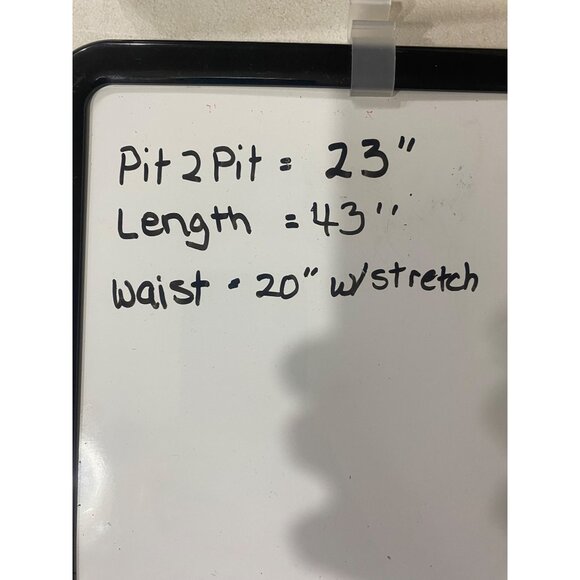 Pit 2 Pit = 23"
Length = 43"
Waist • 20" w/stretch